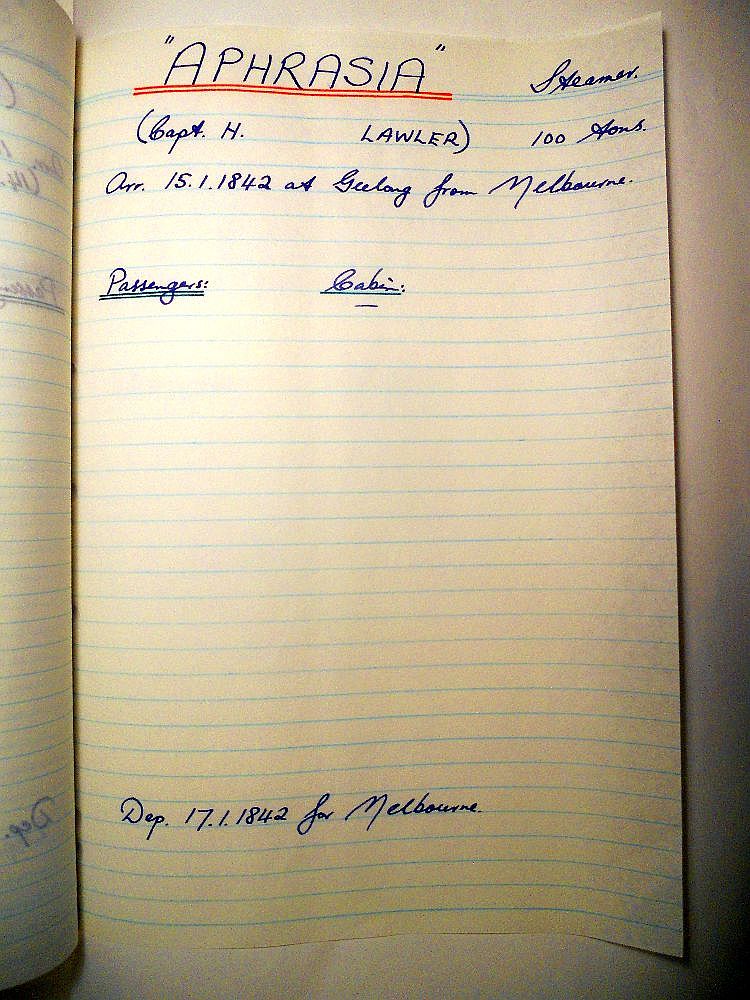 "APHRASIA" Steamer.
(Capt. H. LAWLER) 100 Tons.
Arr. 15.1.1842 at Geelong from Melbourne.
Passengers: Cabin:
Dep. 17.1.1842 for Melbourne.